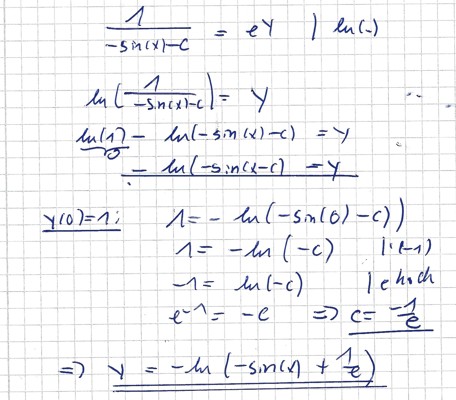 1/(-sin(x)-c) = e^y | ln(·)
ln(1/(-sin(x)-c)) = y
ln(1) - ln(-sin(x)-c) = y
0
- ln(-sin(x-c) = y
y(0)=1: 1 = - ln(-sin(0)-c))
1 = -ln(-c) | ·(-1)
-1 = ln(-c) | e hoch
e^-1 = -c => c = -1/e
=> y = -ln(-sin(x) + 1/e)